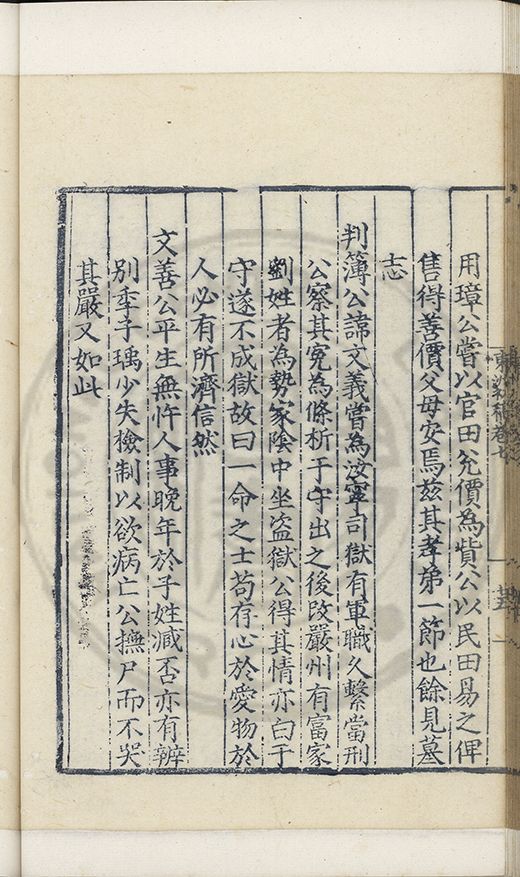 用璋公嘗以官田兊價為貲公以民田易之俾
售得善價父母安焉兹其孝弟一節也餘見墓
志
判簿公諱文義嘗為汝寧司獄有軍職久繫當刑
公察其寃為條析于守出之後改嚴州有富家
劉姓者為勢家陰中坐盗獄公得其情亦白于
守遂不成獄故曰一命之士苟存心於愛物於
人必有所濟信然
文善公平生無忤人事晚年於子姓減否亦有辨
别季子瑀少失撿制以欲病亡公撫尸而不哭
其嚴又如此